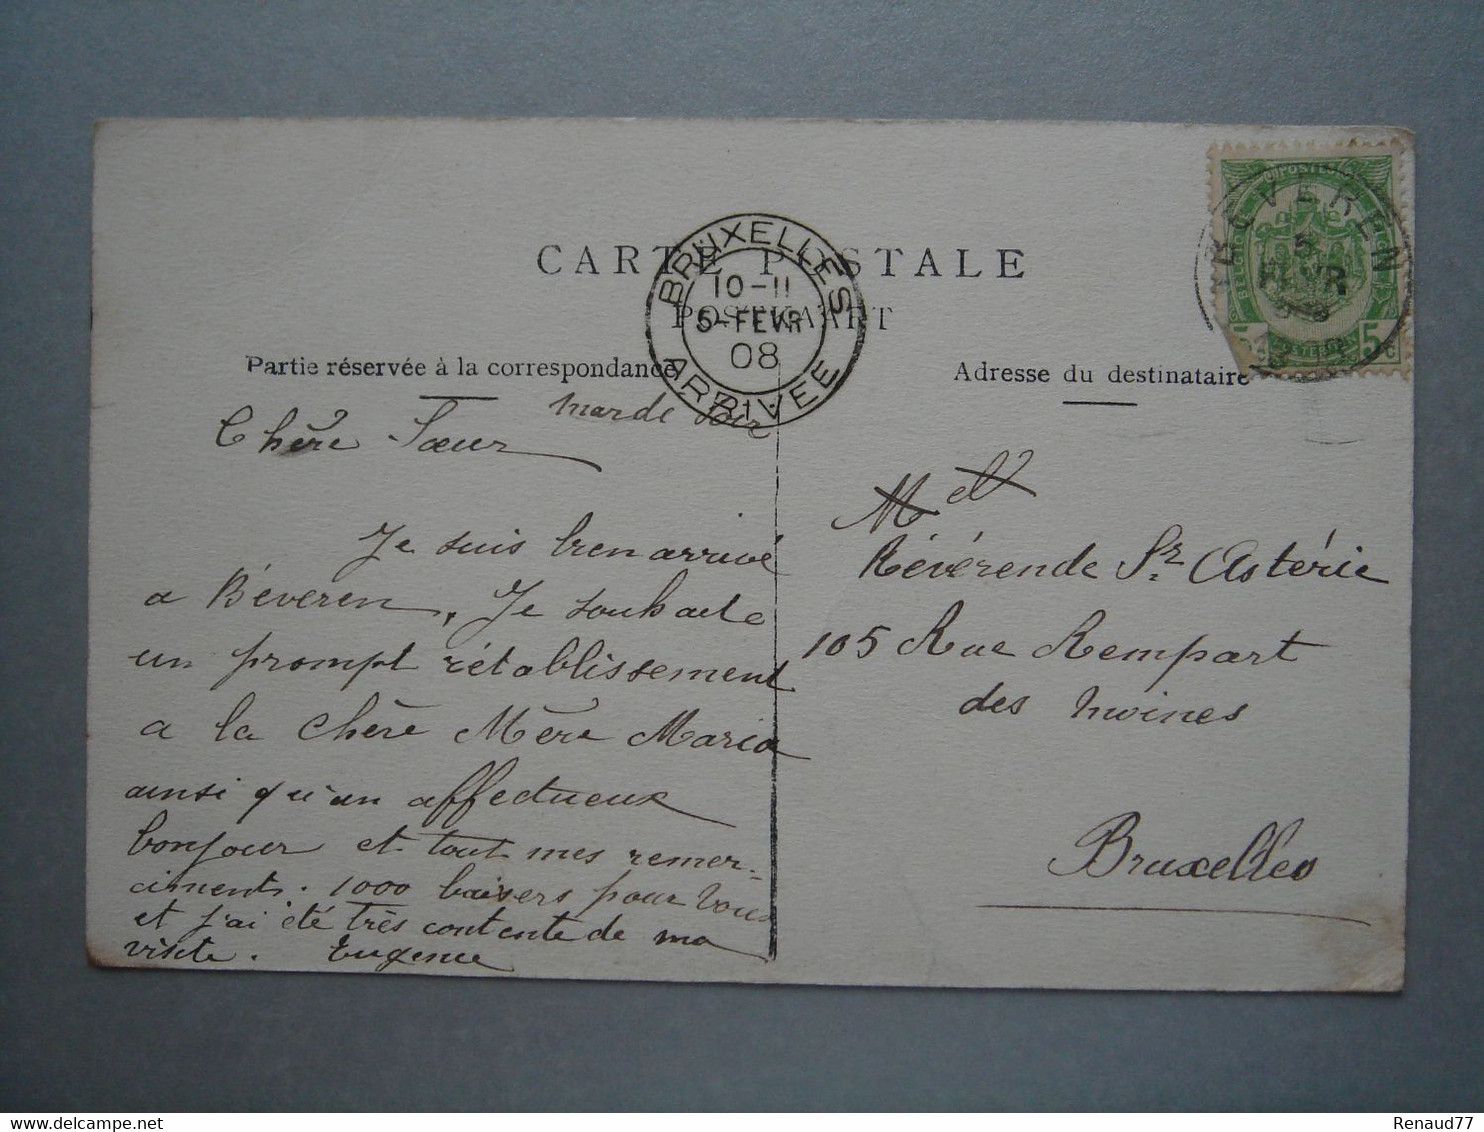 CARTE POSTALE
POSTKAART
BRUXELLES
10-11
5-FEVR
08
ARRIVEE
BEVEREN
5
FEVR
POSTES
5c
Partie réservée à la correspondance
Adresse du destinataire
mardi soir
Chère Sœur
Je suis bien arrivé
a Béveren, Je souhaite
un prompt rétablissement
a la chère Mère Maria
ainsi qu'un affectueux
bonjour et tout mes remer-
ciments. 1000 baisers pour Vous
et j'ai été très contente de ma
visite. Eugenie
Révérende Sr Astérie
105 Rue Rempart
des moines
Bruxelles
Renaud77